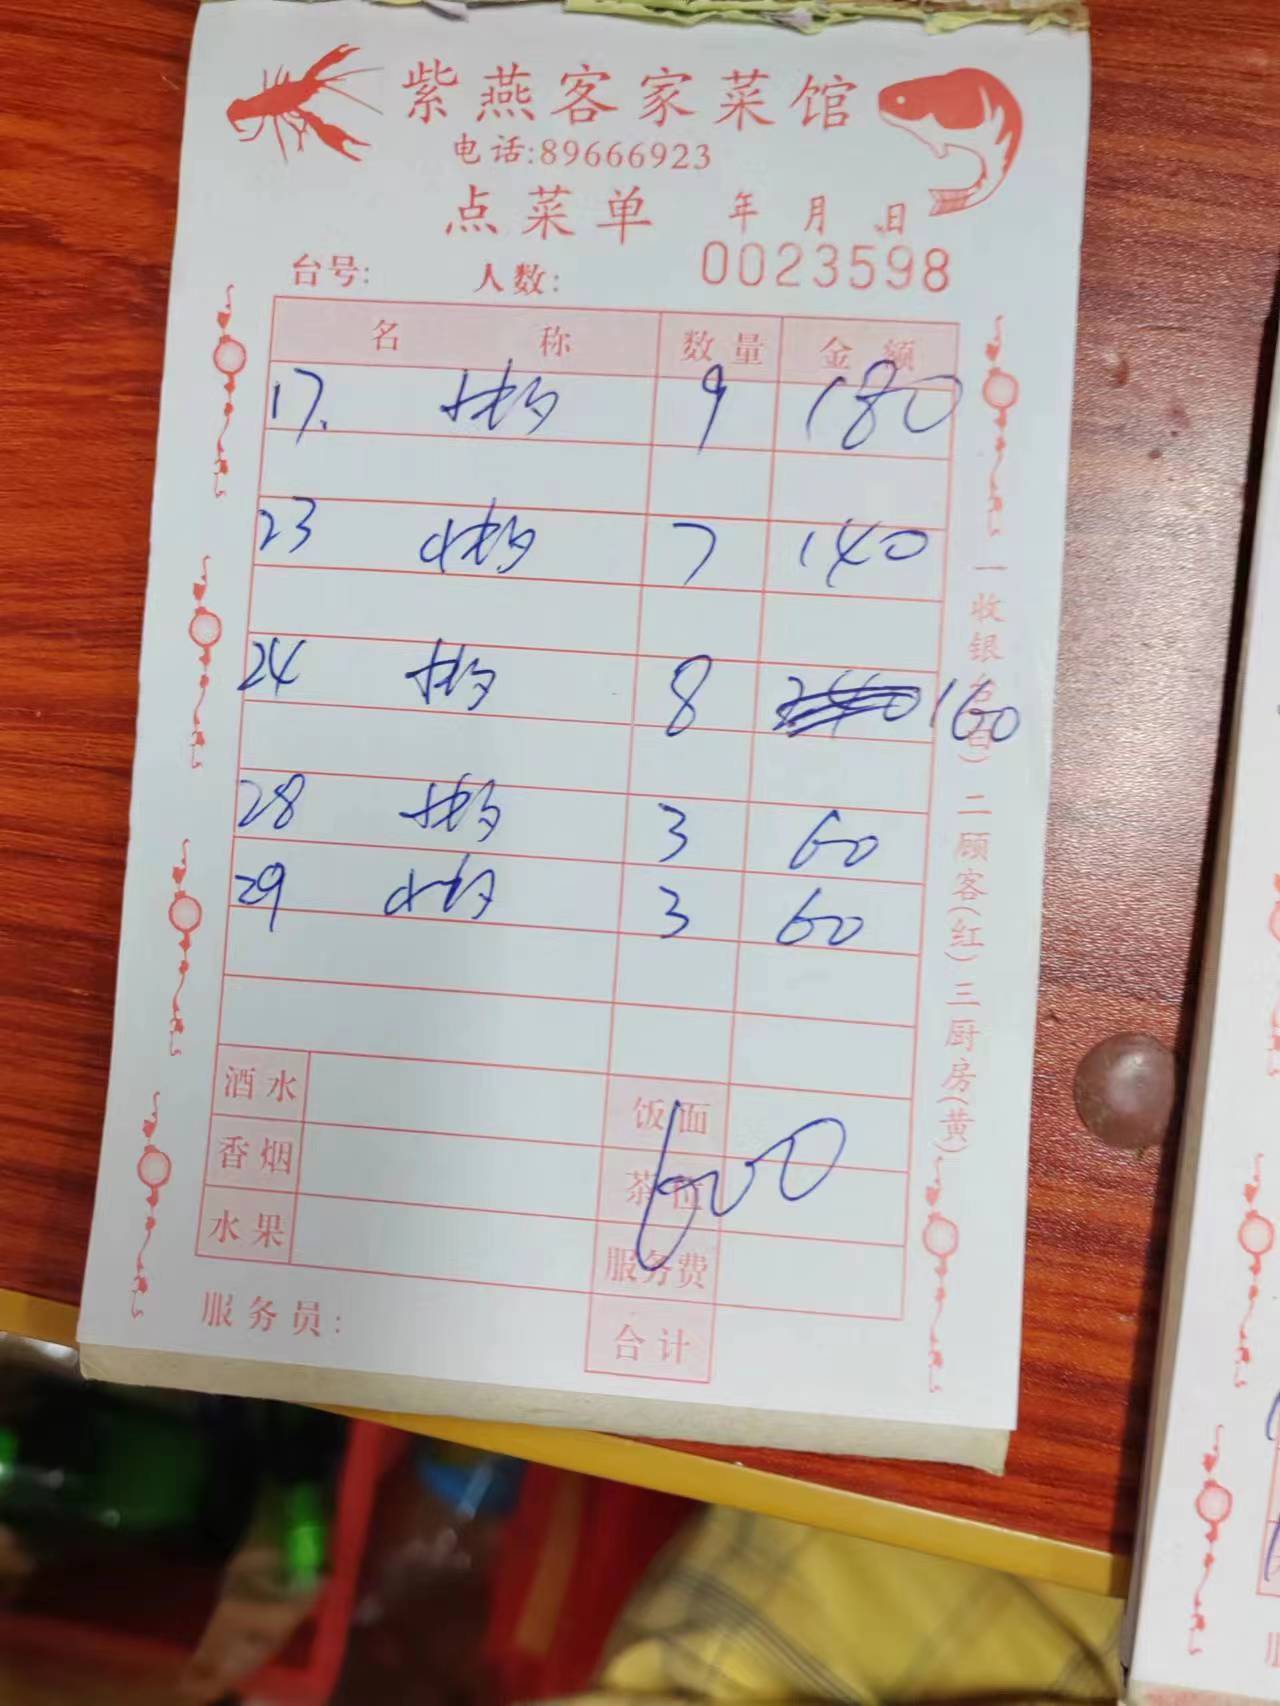 紫燕客家菜馆
电话:89666923
点菜单 年 月 日
台号: 人数: 0023598
名 称 数量 金额
17. 9 180
23 7 140
24 8 160
28 3 60
29 3 60
酒水 饭面
香烟 茶位 600
水果 服务费
服务员: 合计
一收银台(白) 二顾客(红) 三厨房(黄)